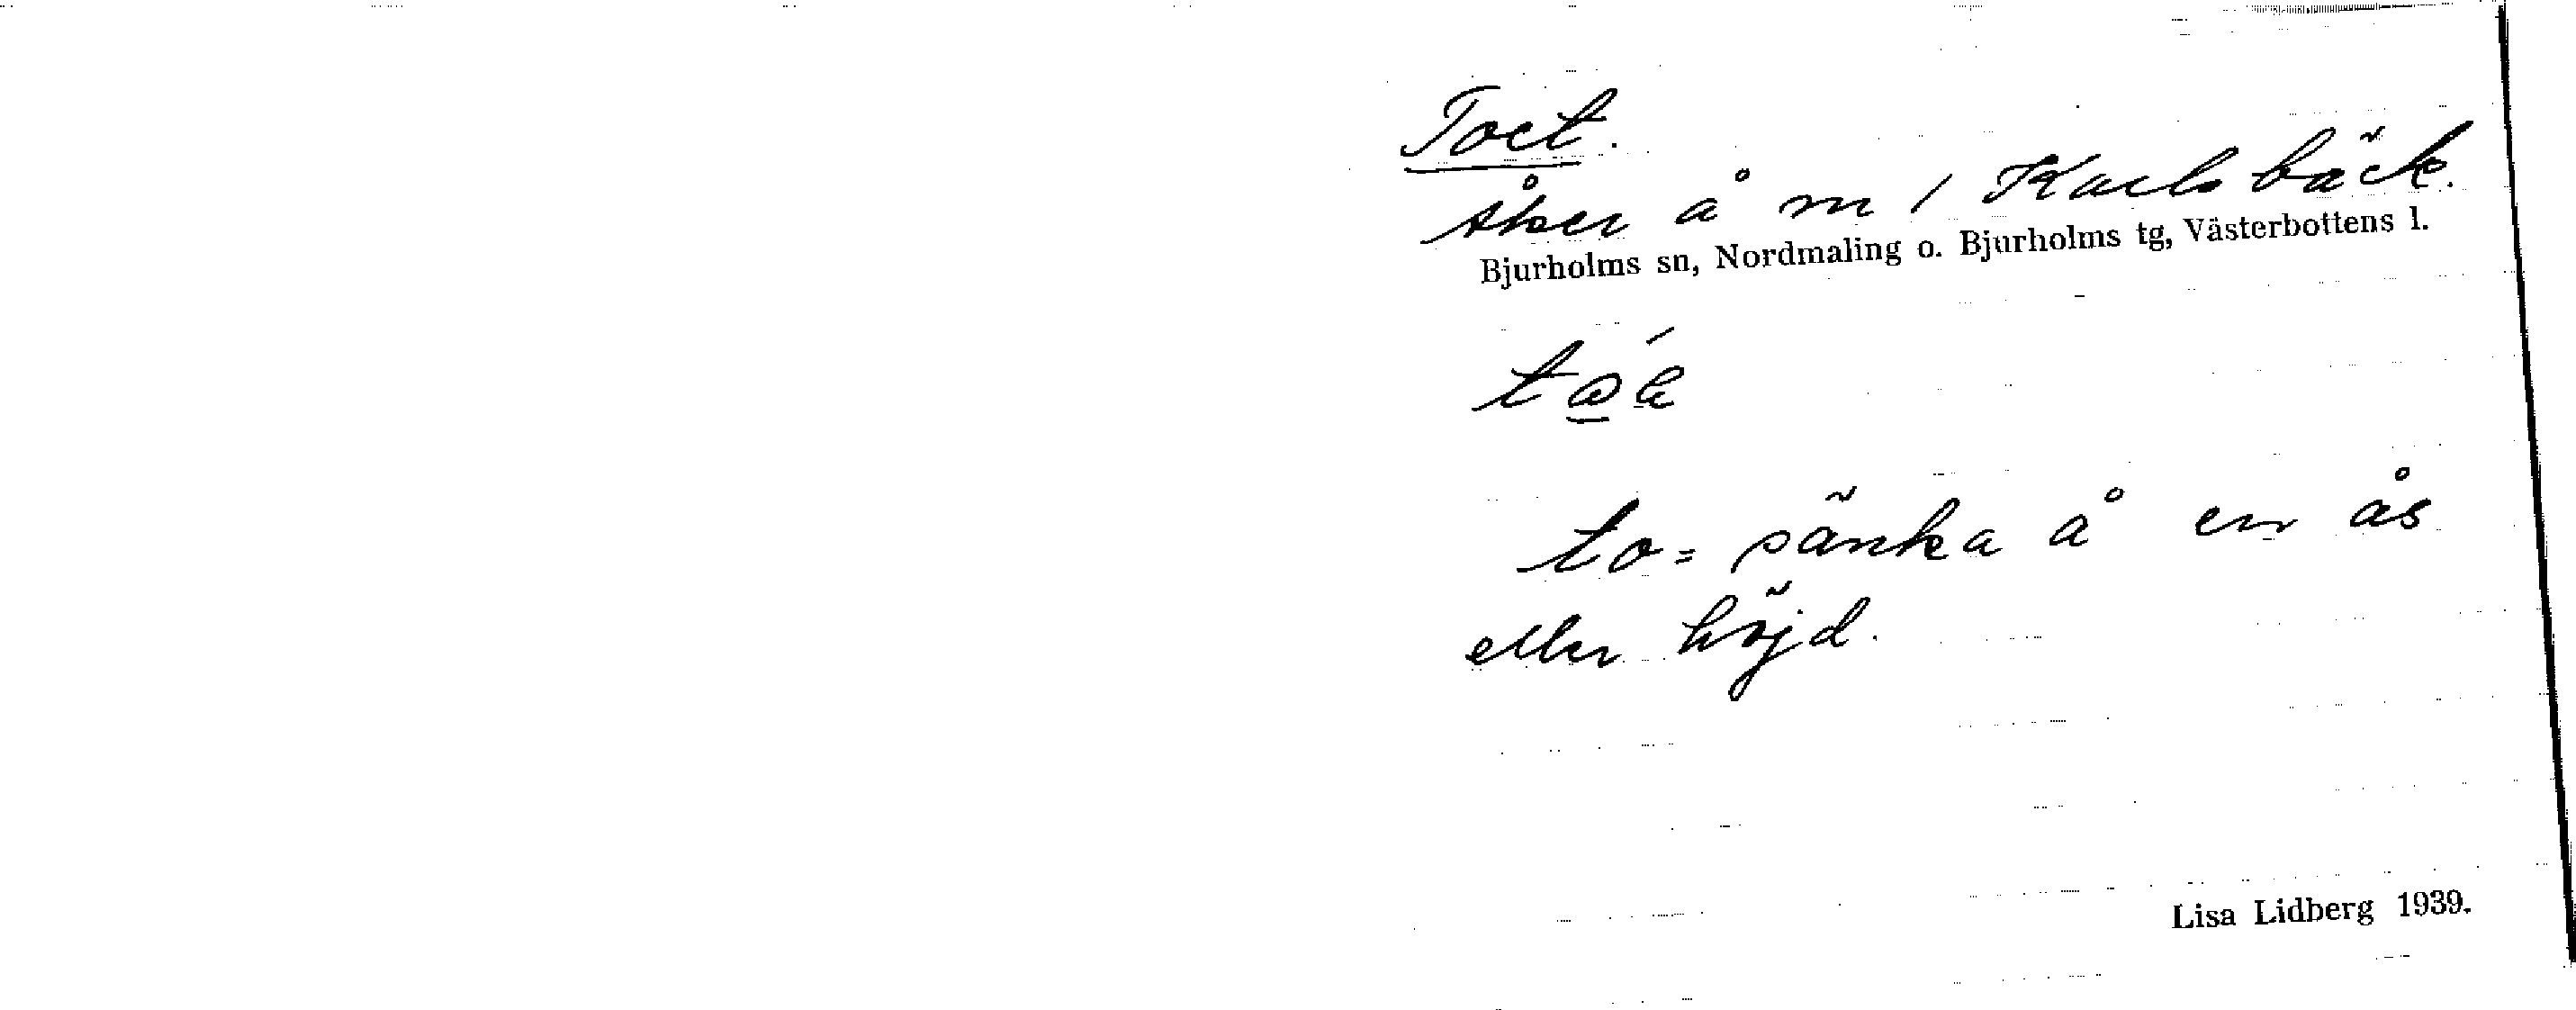 Toet.
åker å m / Karlsbäck.
Bjurholms sn, Nordmaling o. Bjurholms tg, Västerbottens l.
to = sänka å en ås
eller höjd.
Lisa Lidberg 1939.